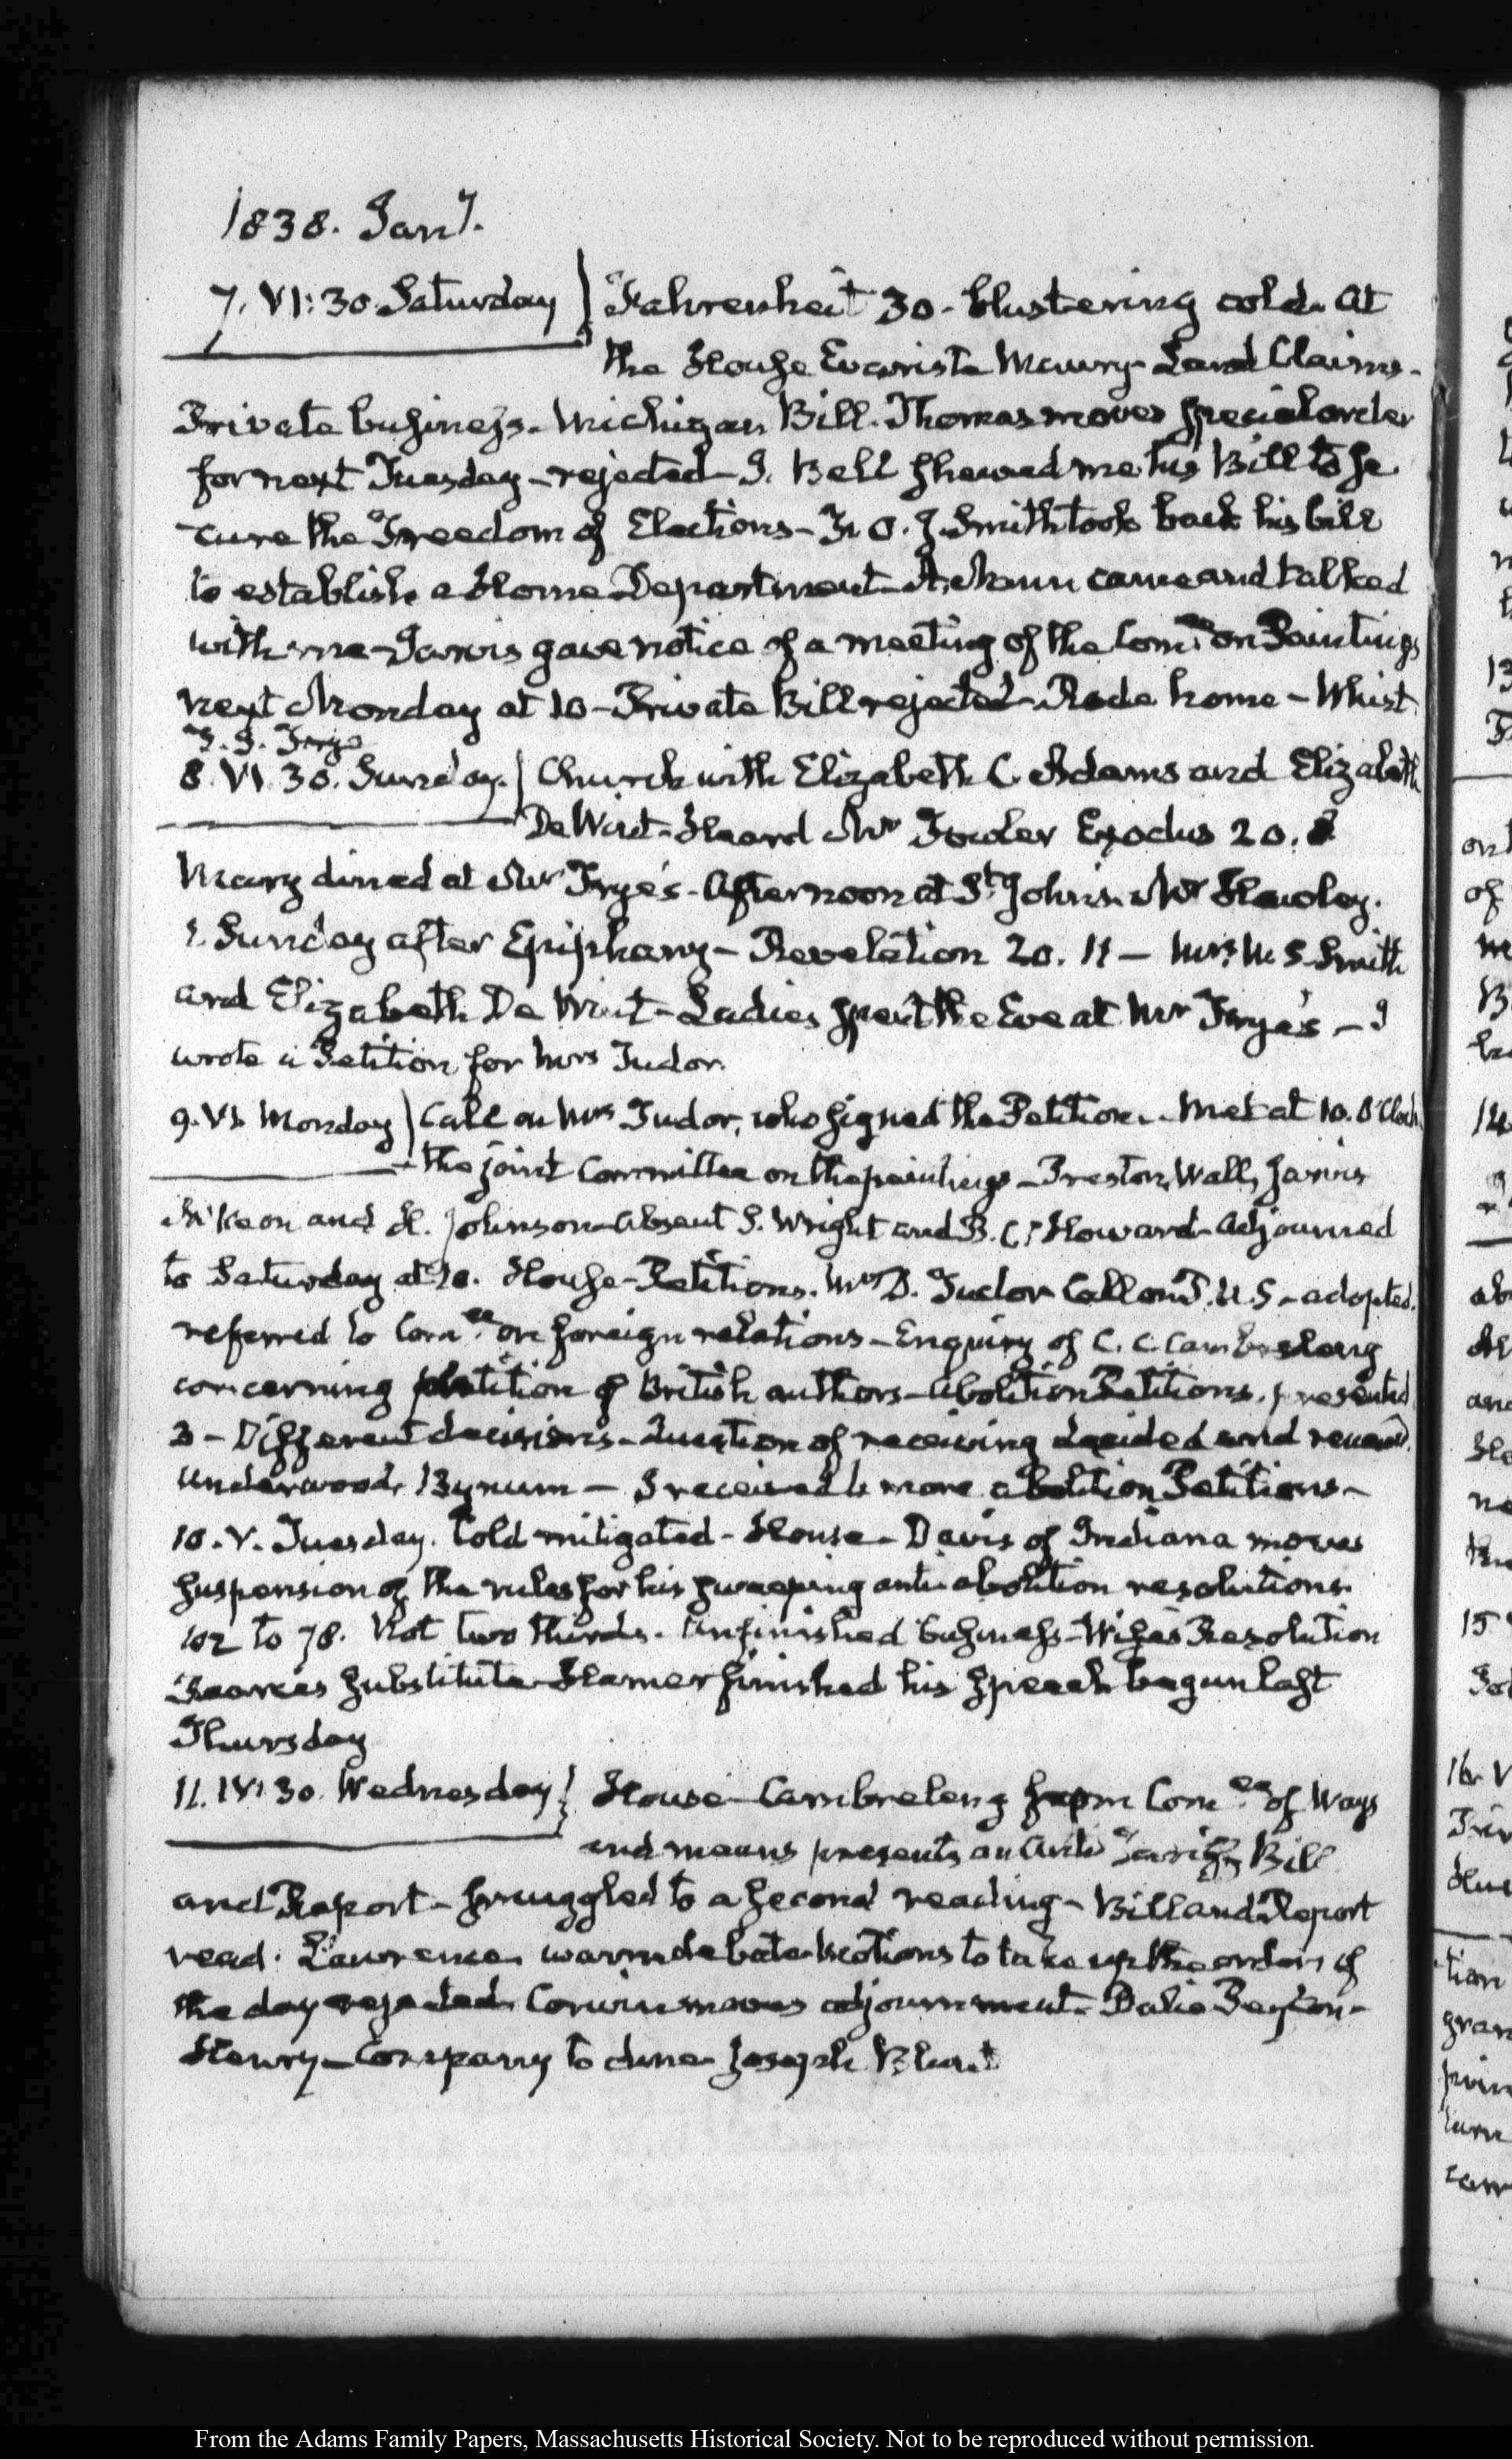 1838. Jany.
7. VI: 30. Saturday } Fahrenheit 30 - blustering cold. At
the House Evariste Maury - Land Claims -
Private business - Michigan Bill. Thomas moves special order
for next Tuesday - rejected - J. Bell shewed me his Bill to se
cure the Freedom of Elections - F. O. J. Smith took back his bill
to establish a Home Department - A. Mann came and talked
with me - Jarvis gave notice of a meeting of the Comee. on Paintings
next Monday at 10 - Private Bill rejected - Rode home - Whist
T. J. Frye
8. VI. 30. Sunday. } Church with Elizabeth C. Adams and Elizabeth
De Wint - Heard Mr Fowler Exodus 20. 8
Mary dined at Mr Frye's - Afternoon at St. John's. Mr Hawley.
1. Sunday after Epiphany - Revelation 20. 11 - Mrs. W. S. Smith
and Elizabeth De Wint - Ladies spent the Eve at Mr Frye's - I
wrote a Petition for Mrs Tudor.
9. VI. Monday } Call on Mrs Tudor, who signed the Petition. Met at 10. O'Clock
the joint Committee on the paintings - Preston, Wall, Jarvis
McKeon and H. Johnson - Absent S. Wright and B. C. Howard - Adjourned
to Saturday at 10. House - Petitions. Mrs D. Tudor Call on P. U. S - adopted.
referred to Comee. on foreign relations - Enquiry of C. C. Cambreleng
concerning petition of British authors - Abolition Petitions. presented
3 - Different decisions - Question of receiving decided and renewed.
Underwood, Bynum - I received more abolition Petitions -
10. V. Tuesday. Cold mitigated - House - Davis of Indiana moves
suspension of the rules for his sweeping anti abolition resolutions.
102 to 78. Not two thirds. Unfinished business - Wise's Resolution
Pearce's substitute Hamer finished his speech begun last
Thursday
11. IV: 30. Wednesday } House - Cambreleng from Comee. of Ways
and means presents an Anti Tariff Bill
and Report - smuggled to a second reading - Bill and Report
read. Lawrence warm debate Motions to take up the orders of
the day rejected. Corwin moves adjournment - Balie Peyton -
Henry - Company to dine Joseph Blunt